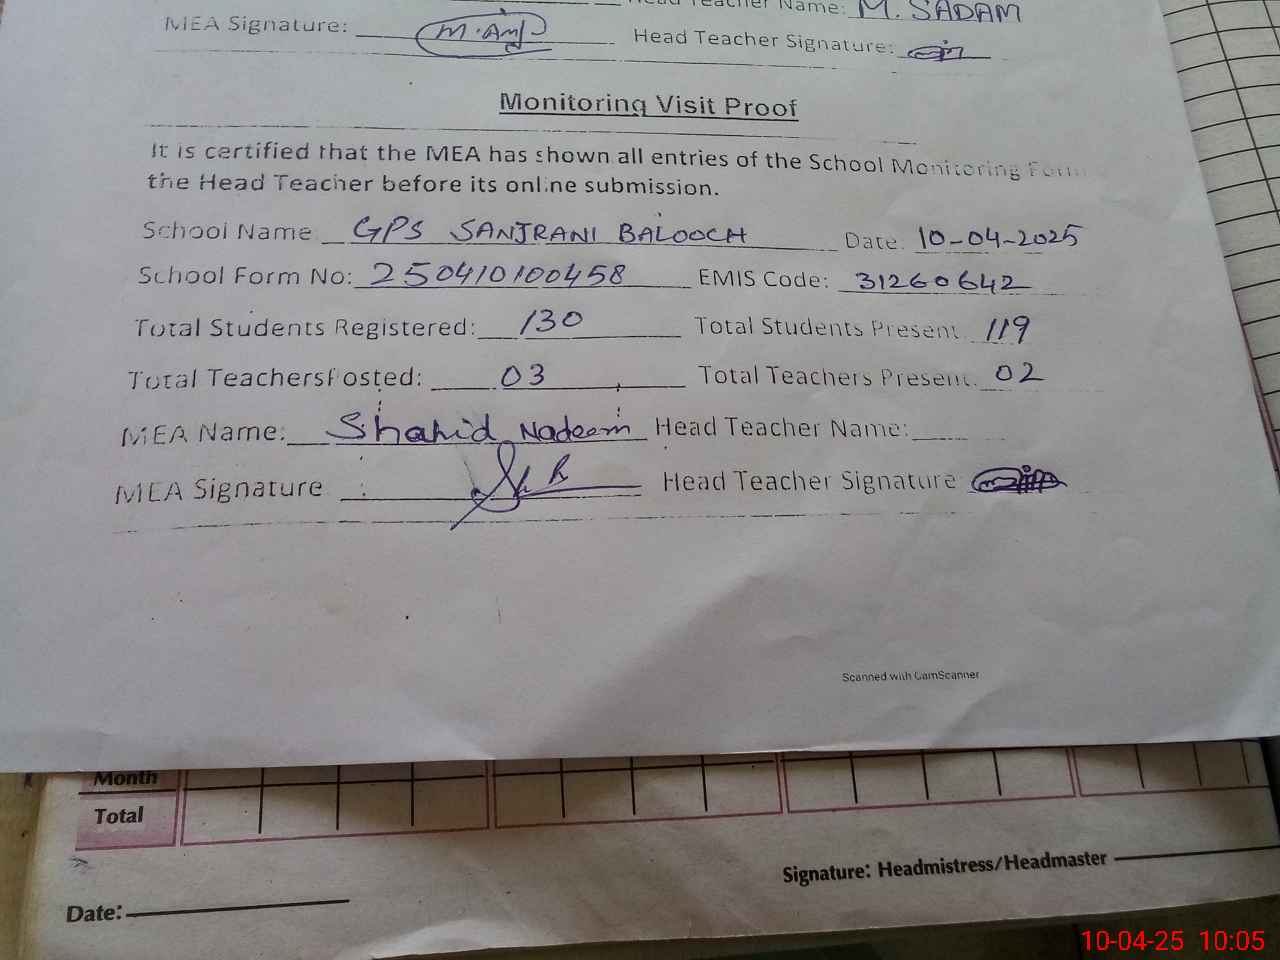 Head Teacher Name: M. SADAM
MEA Signature: M. Amj Head Teacher Signature:
Monitoring Visit Proof
It is certified that the MEA has shown all entries of the School Monitoring Form
the Head Teacher before its online submission.
School Name: GPS SANJRANI BALOOCH Date: 10-04-2025
School Form No: 250410100458 EMIS Code: 31260642
Total Students Registered: 130 Total Students Present: 119
Total Teachers Posted: 03 Total Teachers Present: 02
MEA Name: Shahid Nadeem Head Teacher Name:
MEA Signature Head Teacher Signature
Scanned with CamScanner
Month
Total
Signature: Headmistress/Headmaster
Date:
10-04-25 10:05